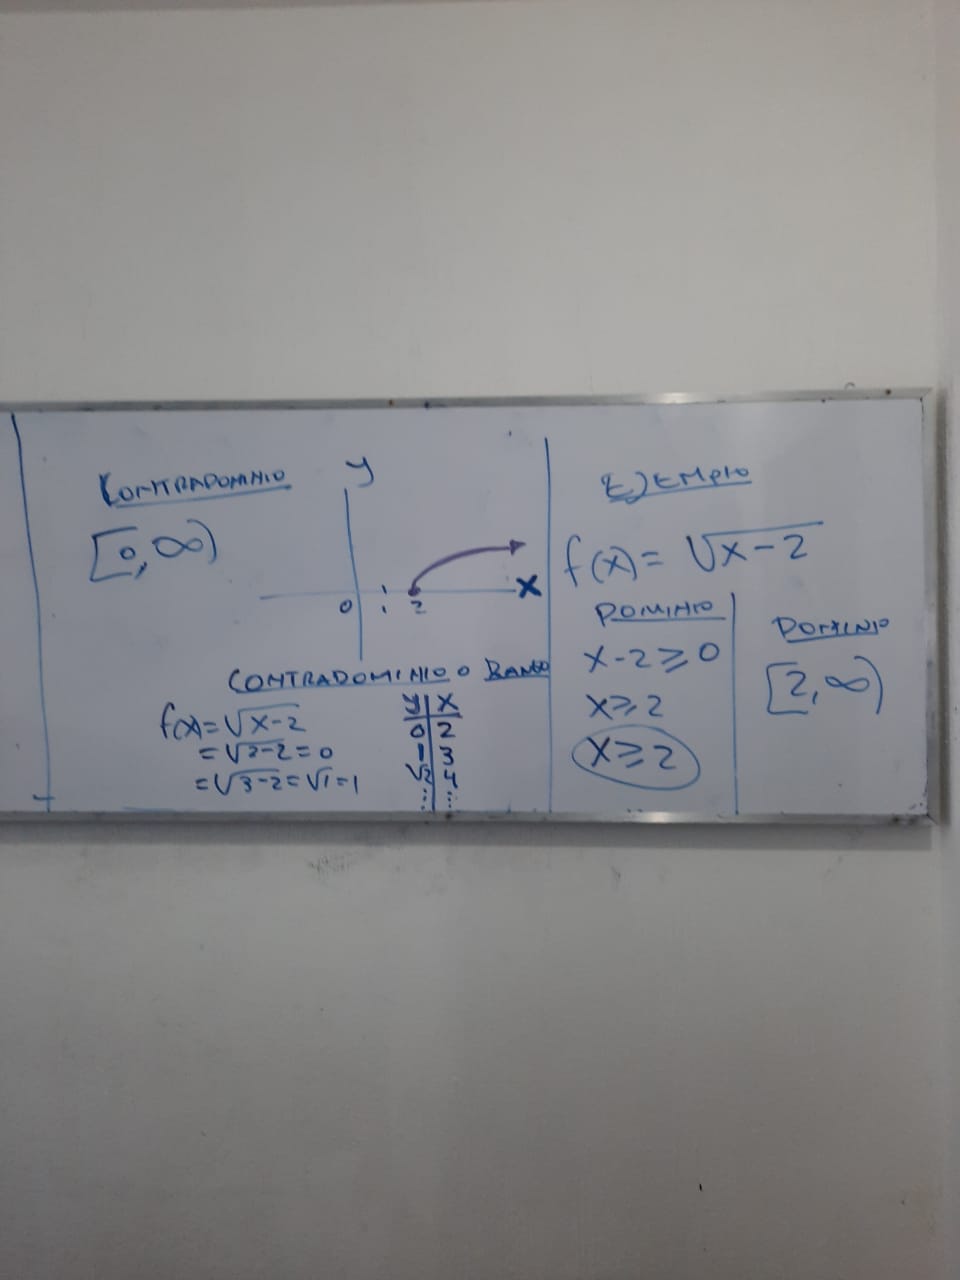 CONTRADOMINIO
[0,∞)
y
x
0
2
CONTRADOMINIO O RANGO
f(x)=√x-2
=√2-2=0
=√3-2=√1=1
y x
0 2
1 3
√2 4
⋮ ⋮
EJEMPLO
f(x)=√x-2
DOMINIO
x-2≥0
x≥2
x≥2
DOMINIO
[2,∞)